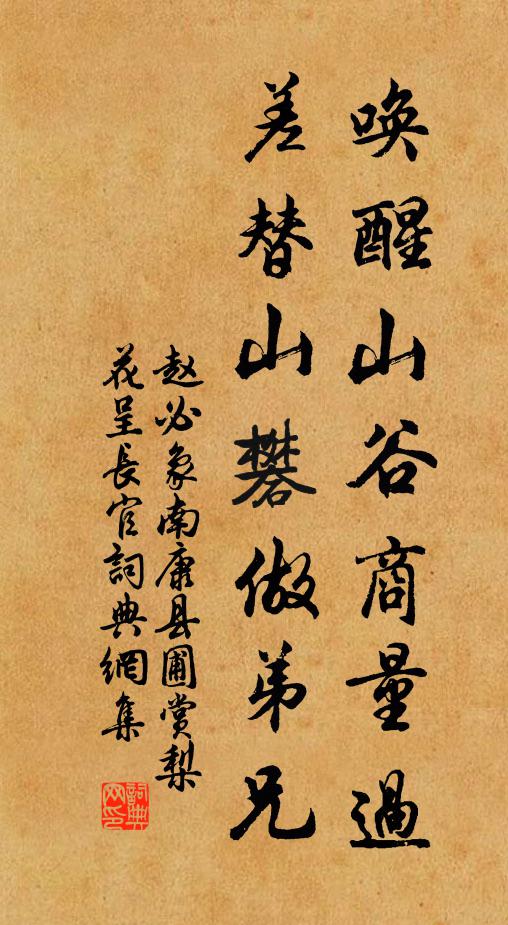 唤醒山谷商量過
差替山礬做弟兄
赵必象南康县圃賞梨
花呈長官詞典網集
詞典网印